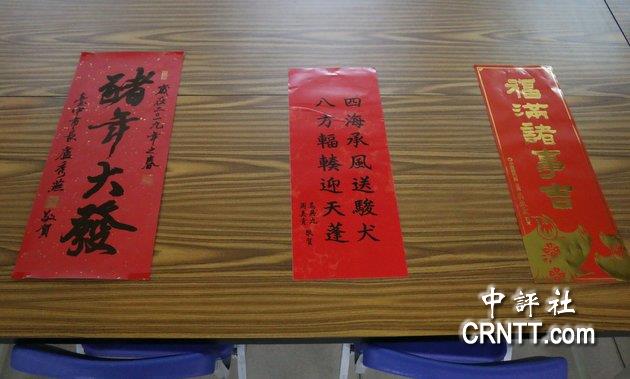 歲在二〇一九年之春
豬年大發
臺中市長 盧秀燕 敬賀
四海承風送駿犬
八方輻輳迎天蓬
馬英九
周美青 敬賀
福滿諸事吉
中評社
CRNTT.com